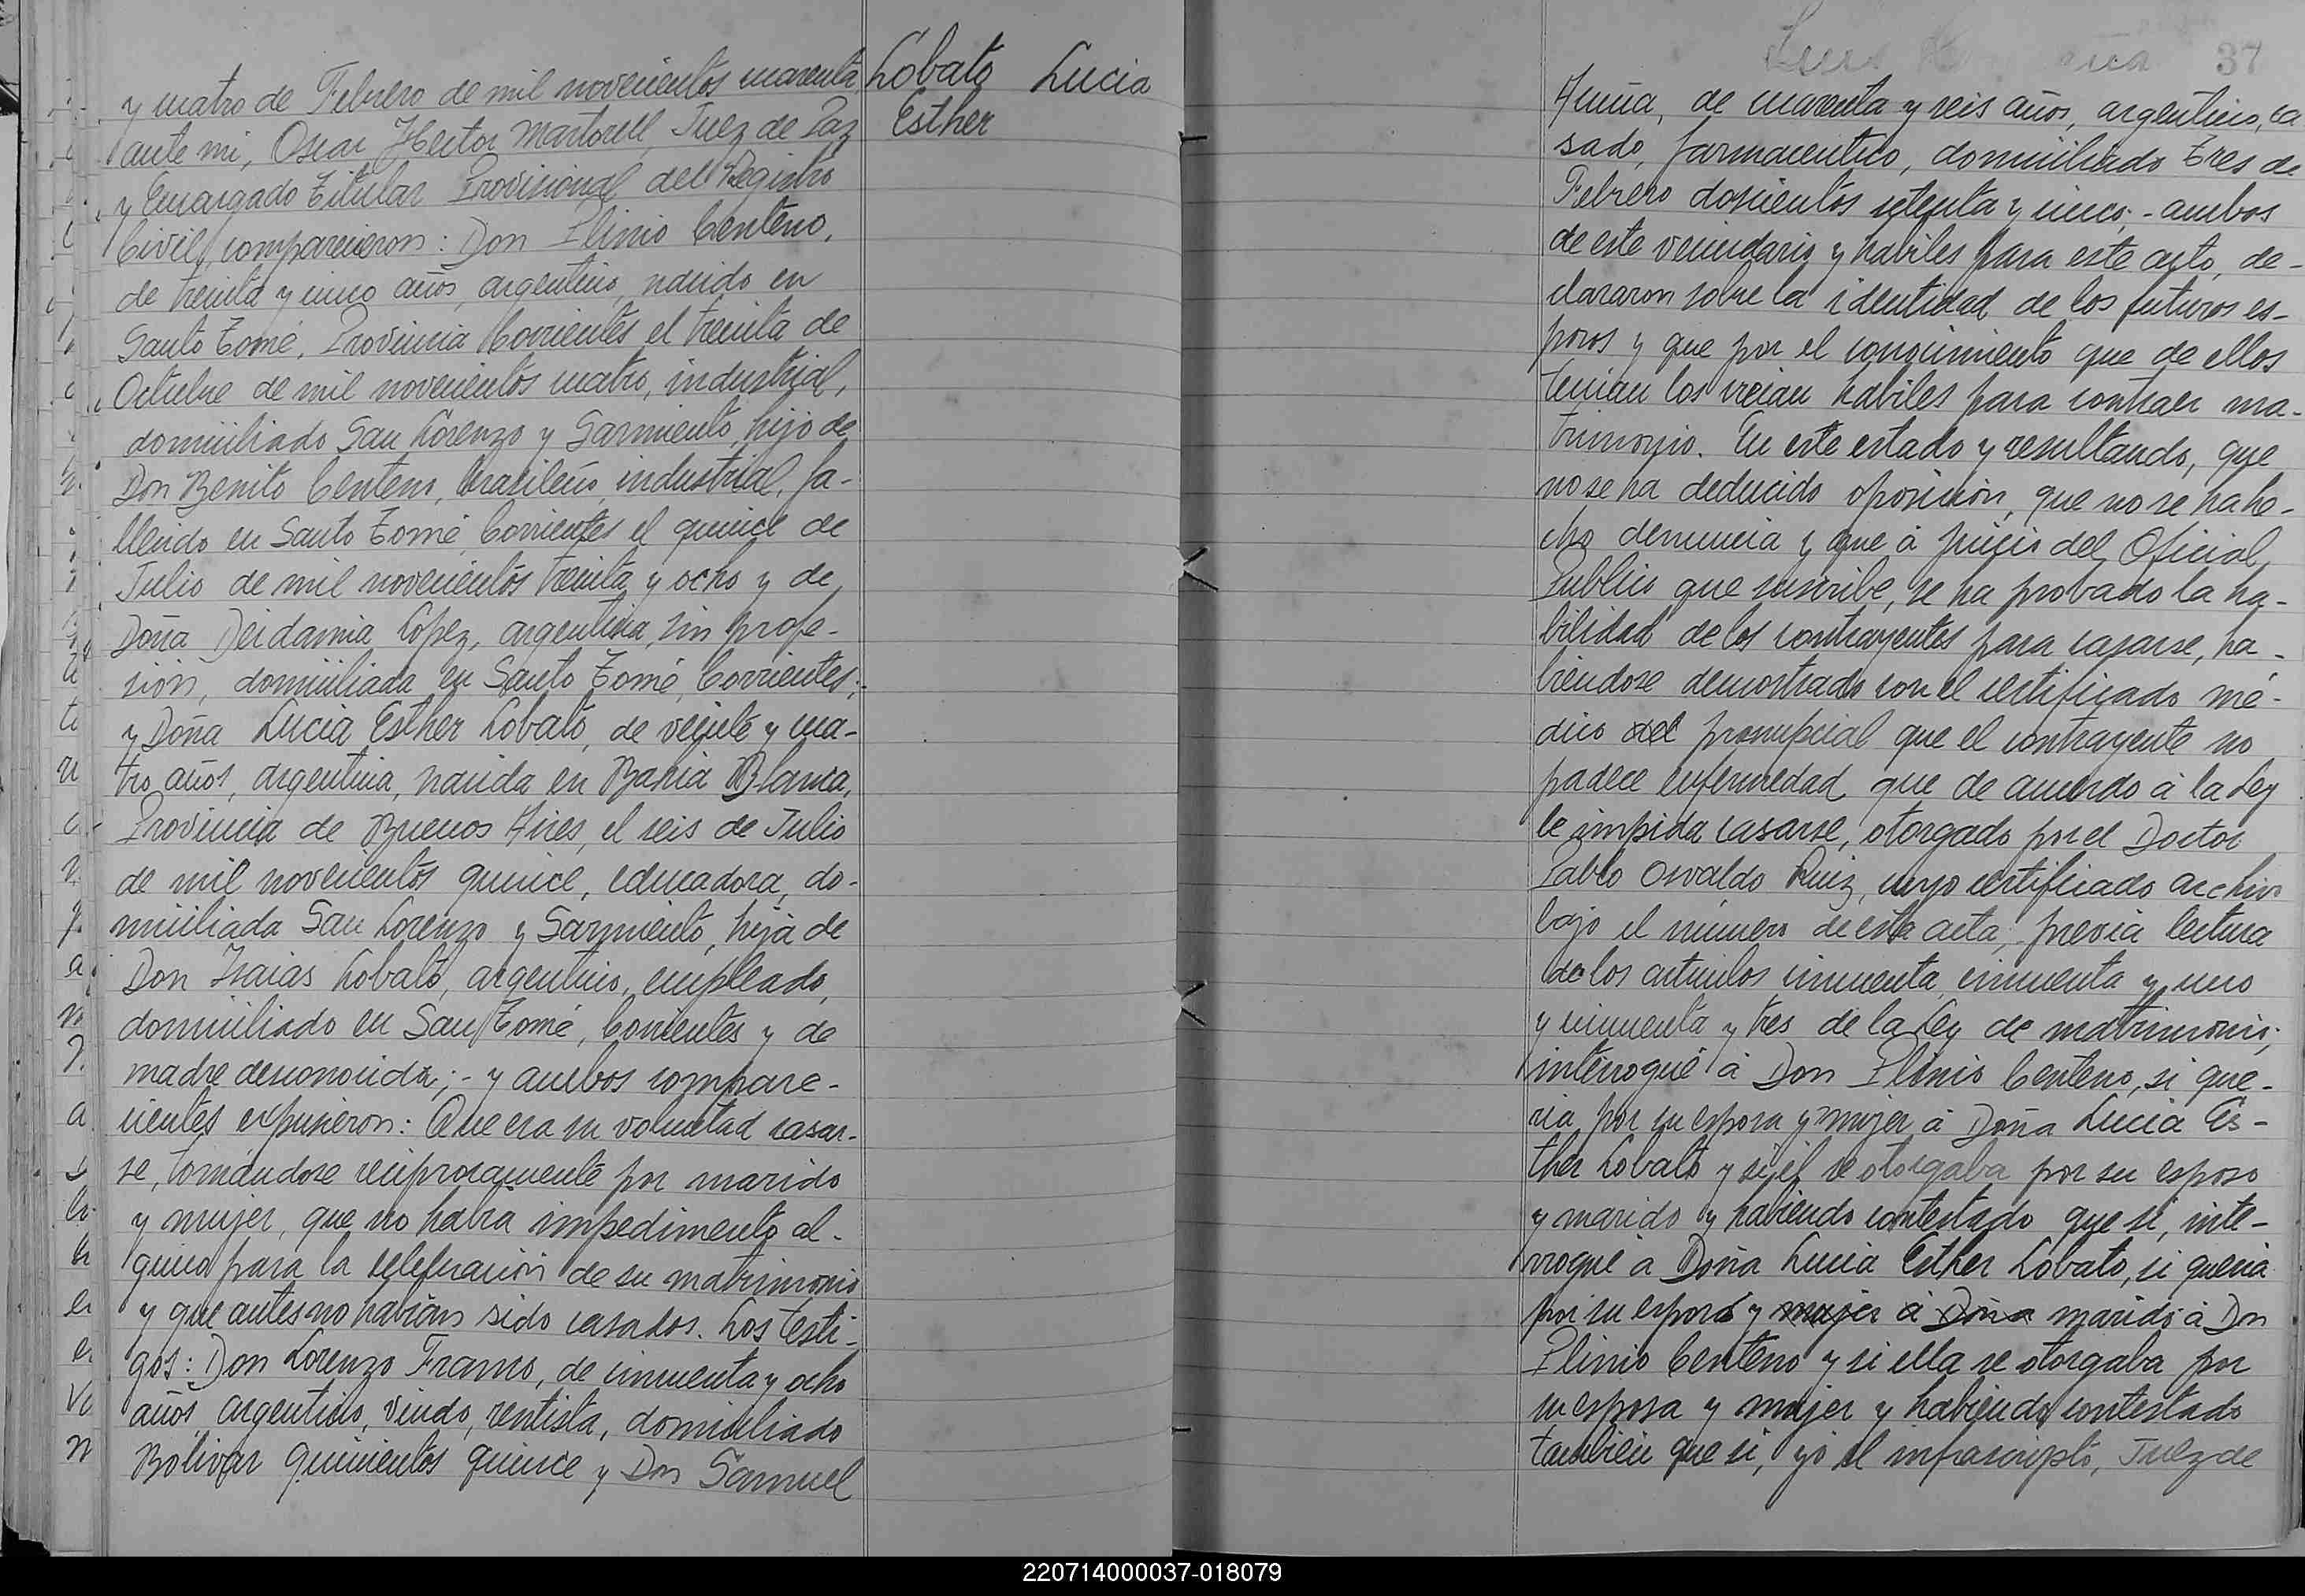 y cuatro de Febrero de mil novecientos cuarenta,
ante mi, Oscar Hector Martorell, Juez de Paz
y Encargado Titular Provisional del Registro
Civil, comparecieron: Don Plinio Centeno,
de treinta y cinco años, argentino, nacido en
Santo Tomé, Provincia Corrientes el treinta de
Octubre de mil novecientos cuatro, industrial,
domiciliado San Lorenzo y Sarmiento, hijo de
Don Benito Centeno, brasileño, industrial, fa-
llecido en Santo Tomé, Corrientes el quince de
Julio de mil novecientos treinta y ocho y de
Doña Deidamia Lopez, argentina, sin profe-
sión, domiciliada en Santo Tomé, Corrientes;-
y Doña Lucia Esther Lobato, de veinte y cua-
tro años, argentina, nacida en Bahia Blanca,
Provincia de Buenos Aires, el seis de Julio
de mil novecientos quince, educadora, do-
miciliada San Lorenzo y Sarmiento, hija de
Don Isaias Lobato, argentino, empleado,
domiciliado en San Tomé, Corrientes y de
madre desconocida;- y ambos compare-
cientes expusieron: Que era su voluntad casar-
se, tomándose reciprocamente por marido
y mujer, que no habia impedimento al-
guno para la celebración de su matrimonio
y que antes no habian sido casados. Los testi-
gos: Don Lorenzo Framo, de cincuenta y ocho
años, argentino, viudo, rentista, domiciliado
Bolivar quinientos quince y Don Samuel
Lobato Lucia
Esther
37
Acuña, de cuarenta y seis años, argentino, ca
sado, farmaceutico, domiciliado Tres de
Febrero doscientos setenta y cinco;- ambos
de este vecindario y habiles para este acto, de-
clararon sobre la identidad de los futuros es-
posos y que por el conocimiento que de ellos
tenian los creian habiles para contraer ma-
trimonio. En este estado y resultando, que
no se ha deducido oposición, que no se ha he-
cho denuncia y que á juicio del Oficial
Publico que suscribe, se ha probado la ha-
bilidad de los contrayentes para casarse, ha-
biendose demostrado con el certificado mé-
dico del prenupcial que el contrayente no
padece enfermedad que de acuerdo á la Ley
le impida casarse, otorgado por el Doctor
Pablo Osvaldo Ruiz, cuyo certificado archivo
bajo el número de esta acta; previa lectura
de los articulos cincuenta, cincuenta y uno
y cincuenta y tres de la Ley de matrimonio;
interrogué á Don Plinio Centeno, si que-
ria por su esposa y mujer á Doña Lucia Es-
ther Lobato y si él se otorgaba por su esposo
y marido y habiendo contestado que si, inte-
rrogué á Doña Lucia Esther Lobato, si queria
por su esposo y mujer á Doña marido á Don
Plinio Centeno y si ella se otorgaba por
su esposa y mujer y habiendo contestado
tambien que si, yo el infrascripto, Juez de
220714000037-018079